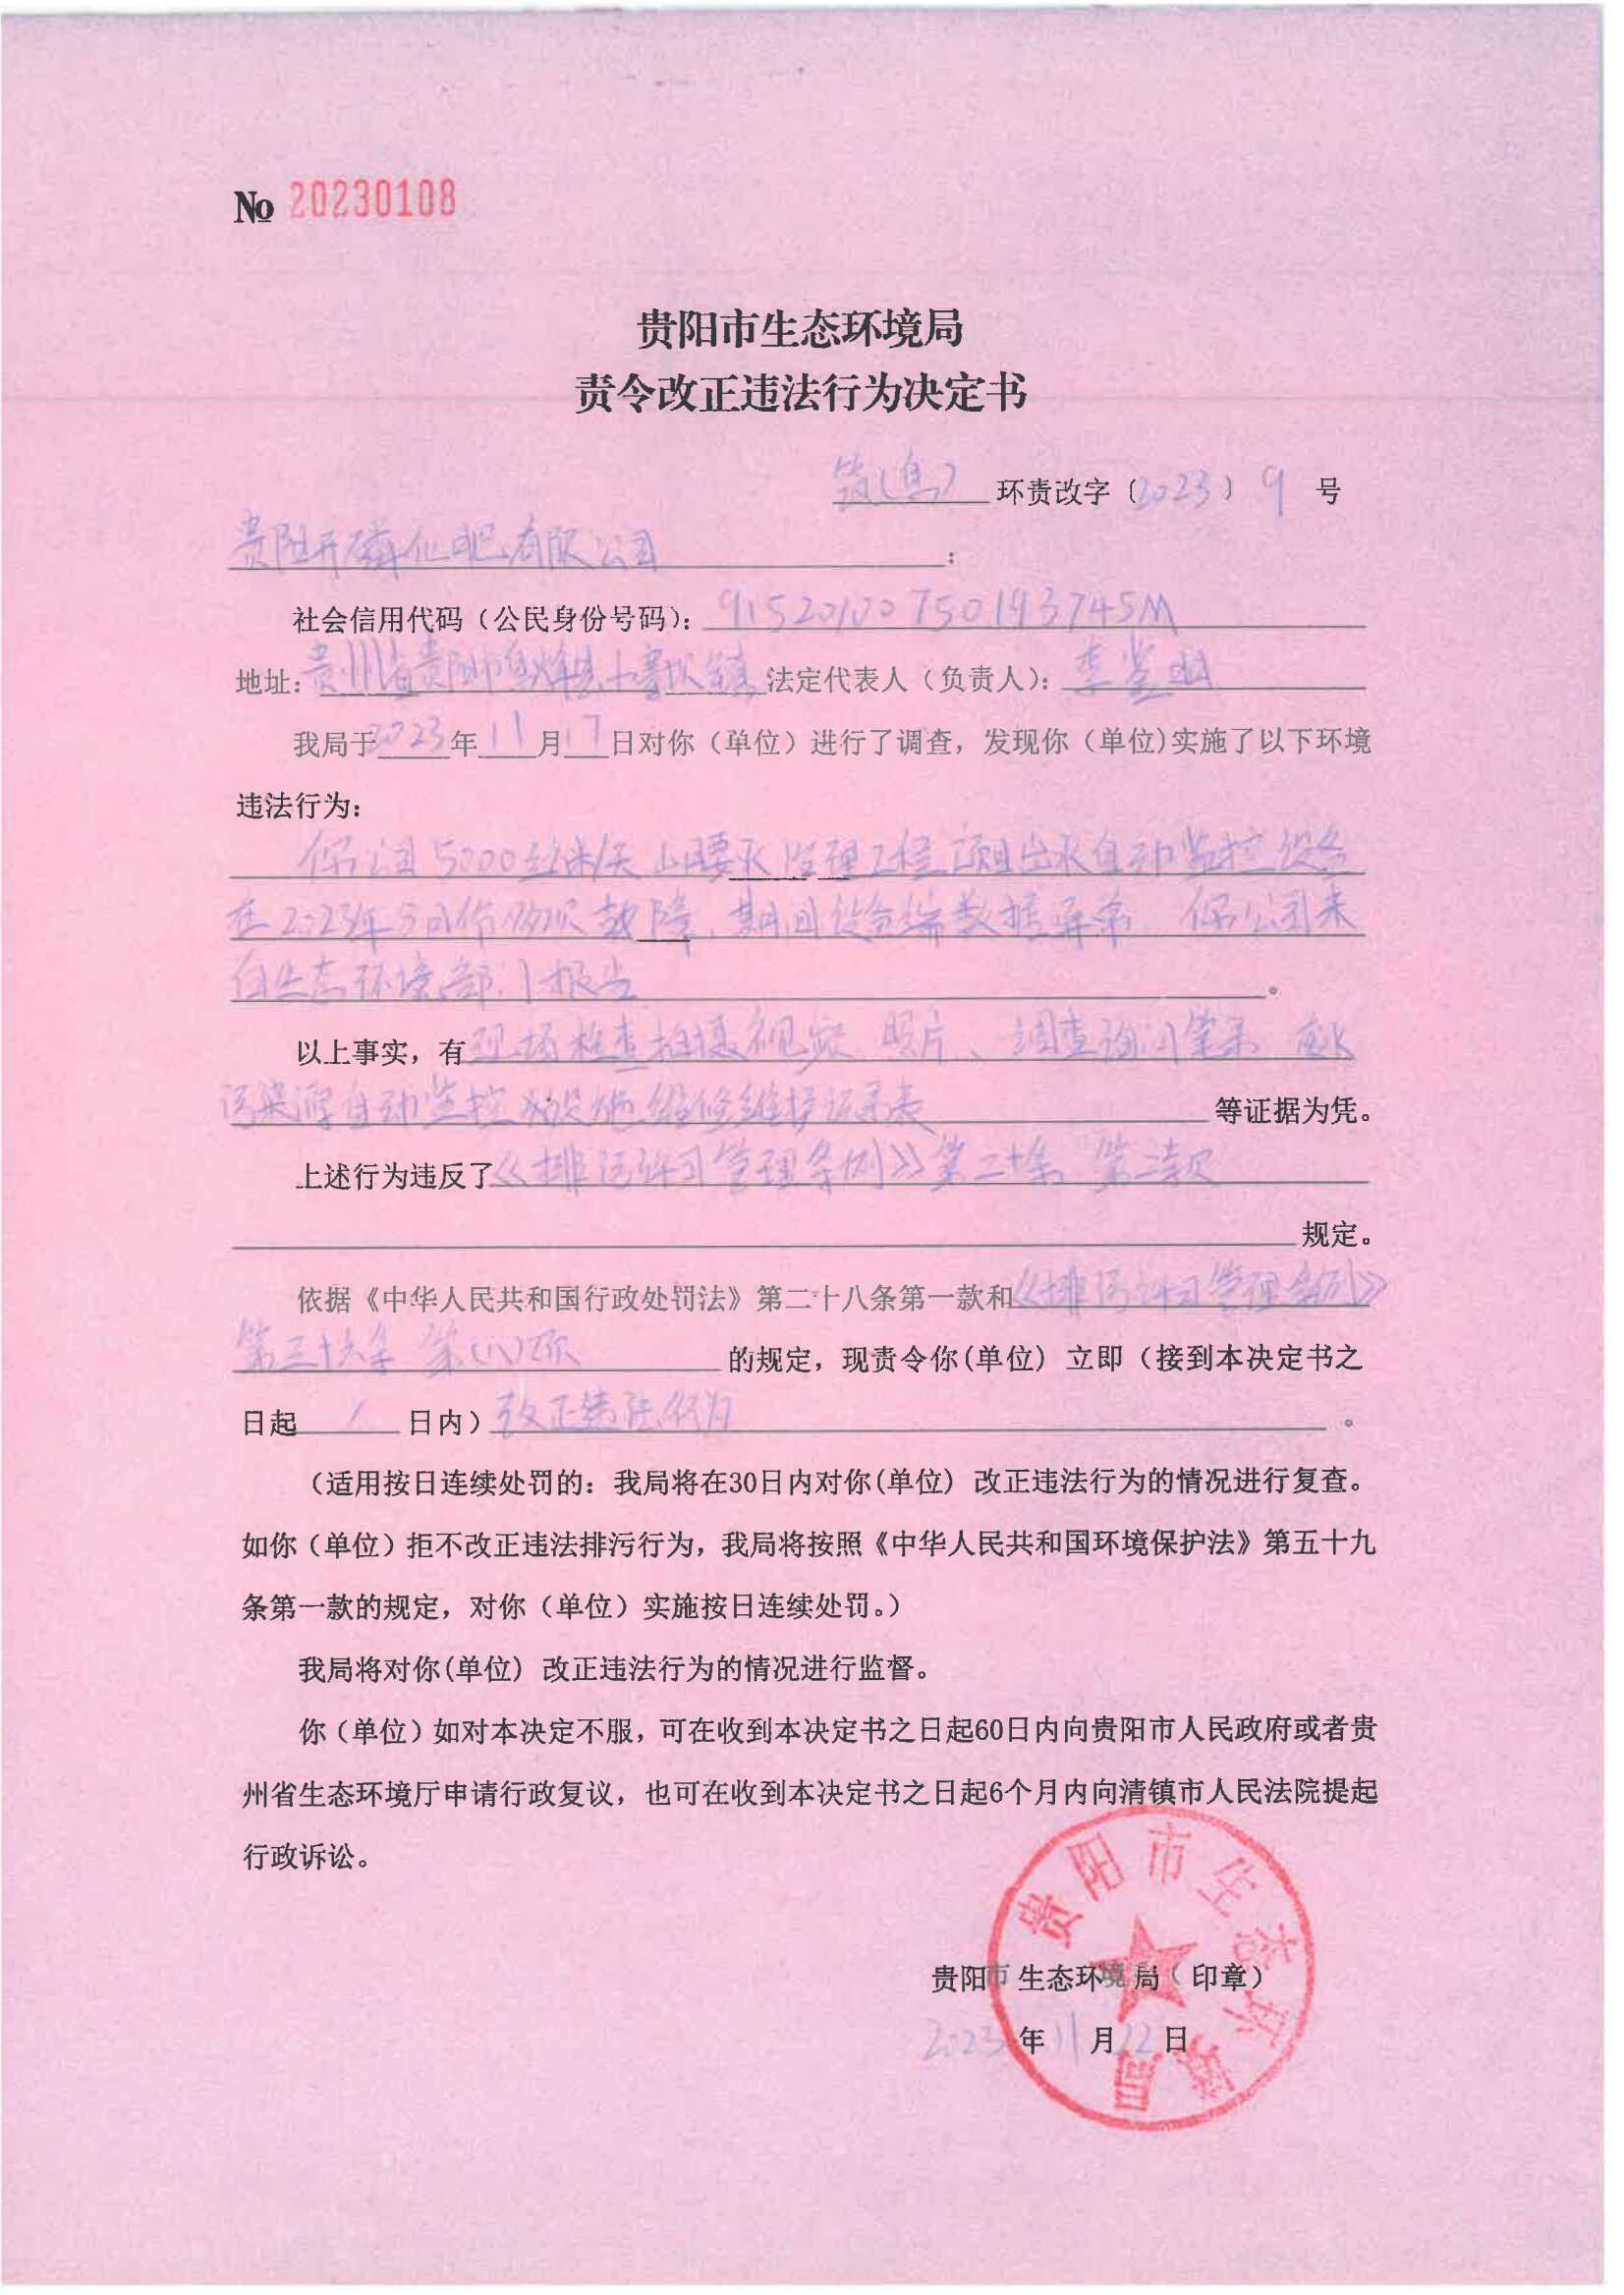 № 20230108
贵阳市生态环境局
责令改正违法行为决定书
筑(乌) 环责改字〔2023〕9 号
贵阳开磷化肥有限公司：
社会信用代码（公民身份号码）：91520100750193745M
地址：贵州省贵阳市息烽县小寨坝镇 法定代表人（负责人）：李
我局于2023年11月17日对你（单位）进行了调查，发现你（单位)实施了以下环境
违法行为：
你公司5000立方米/天 处理工程项目出水自动监控设备
在2023年 月份多次故障，期间设备端数据异常 你公司未
向生态环境部门报告。
以上事实，有现场检查拍摄视频 照片、调查询问笔录
污染源自动监控设施维修维护记录表 等证据为凭。
上述行为违反了《排污许可管理条例》第二十条 第 款
规定。
依据《中华人民共和国行政处罚法》第二十八条第一款和《排污许可管理条例》
第三十六条 第 项 的规定，现责令你(单位）立即（接到本决定书之
日起 / 日内）改正违法行为。
（适用按日连续处罚的：我局将在30日内对你(单位）改正违法行为的情况进行复查。
如你（单位）拒不改正违法排污行为，我局将按照《中华人民共和国环境保护法》第五十九
条第一款的规定，对你（单位）实施按日连续处罚。）
我局将对你(单位）改正违法行为的情况进行监督。
你（单位）如对本决定不服，可在收到本决定书之日起60日内向贵阳市人民政府或者贵
州省生态环境厅申请行政复议，也可在收到本决定书之日起6个月内向清镇市人民法院提起
行政诉讼。
贵阳市生态环境局
贵阳市生态环境局（印章）
2023年11月22日